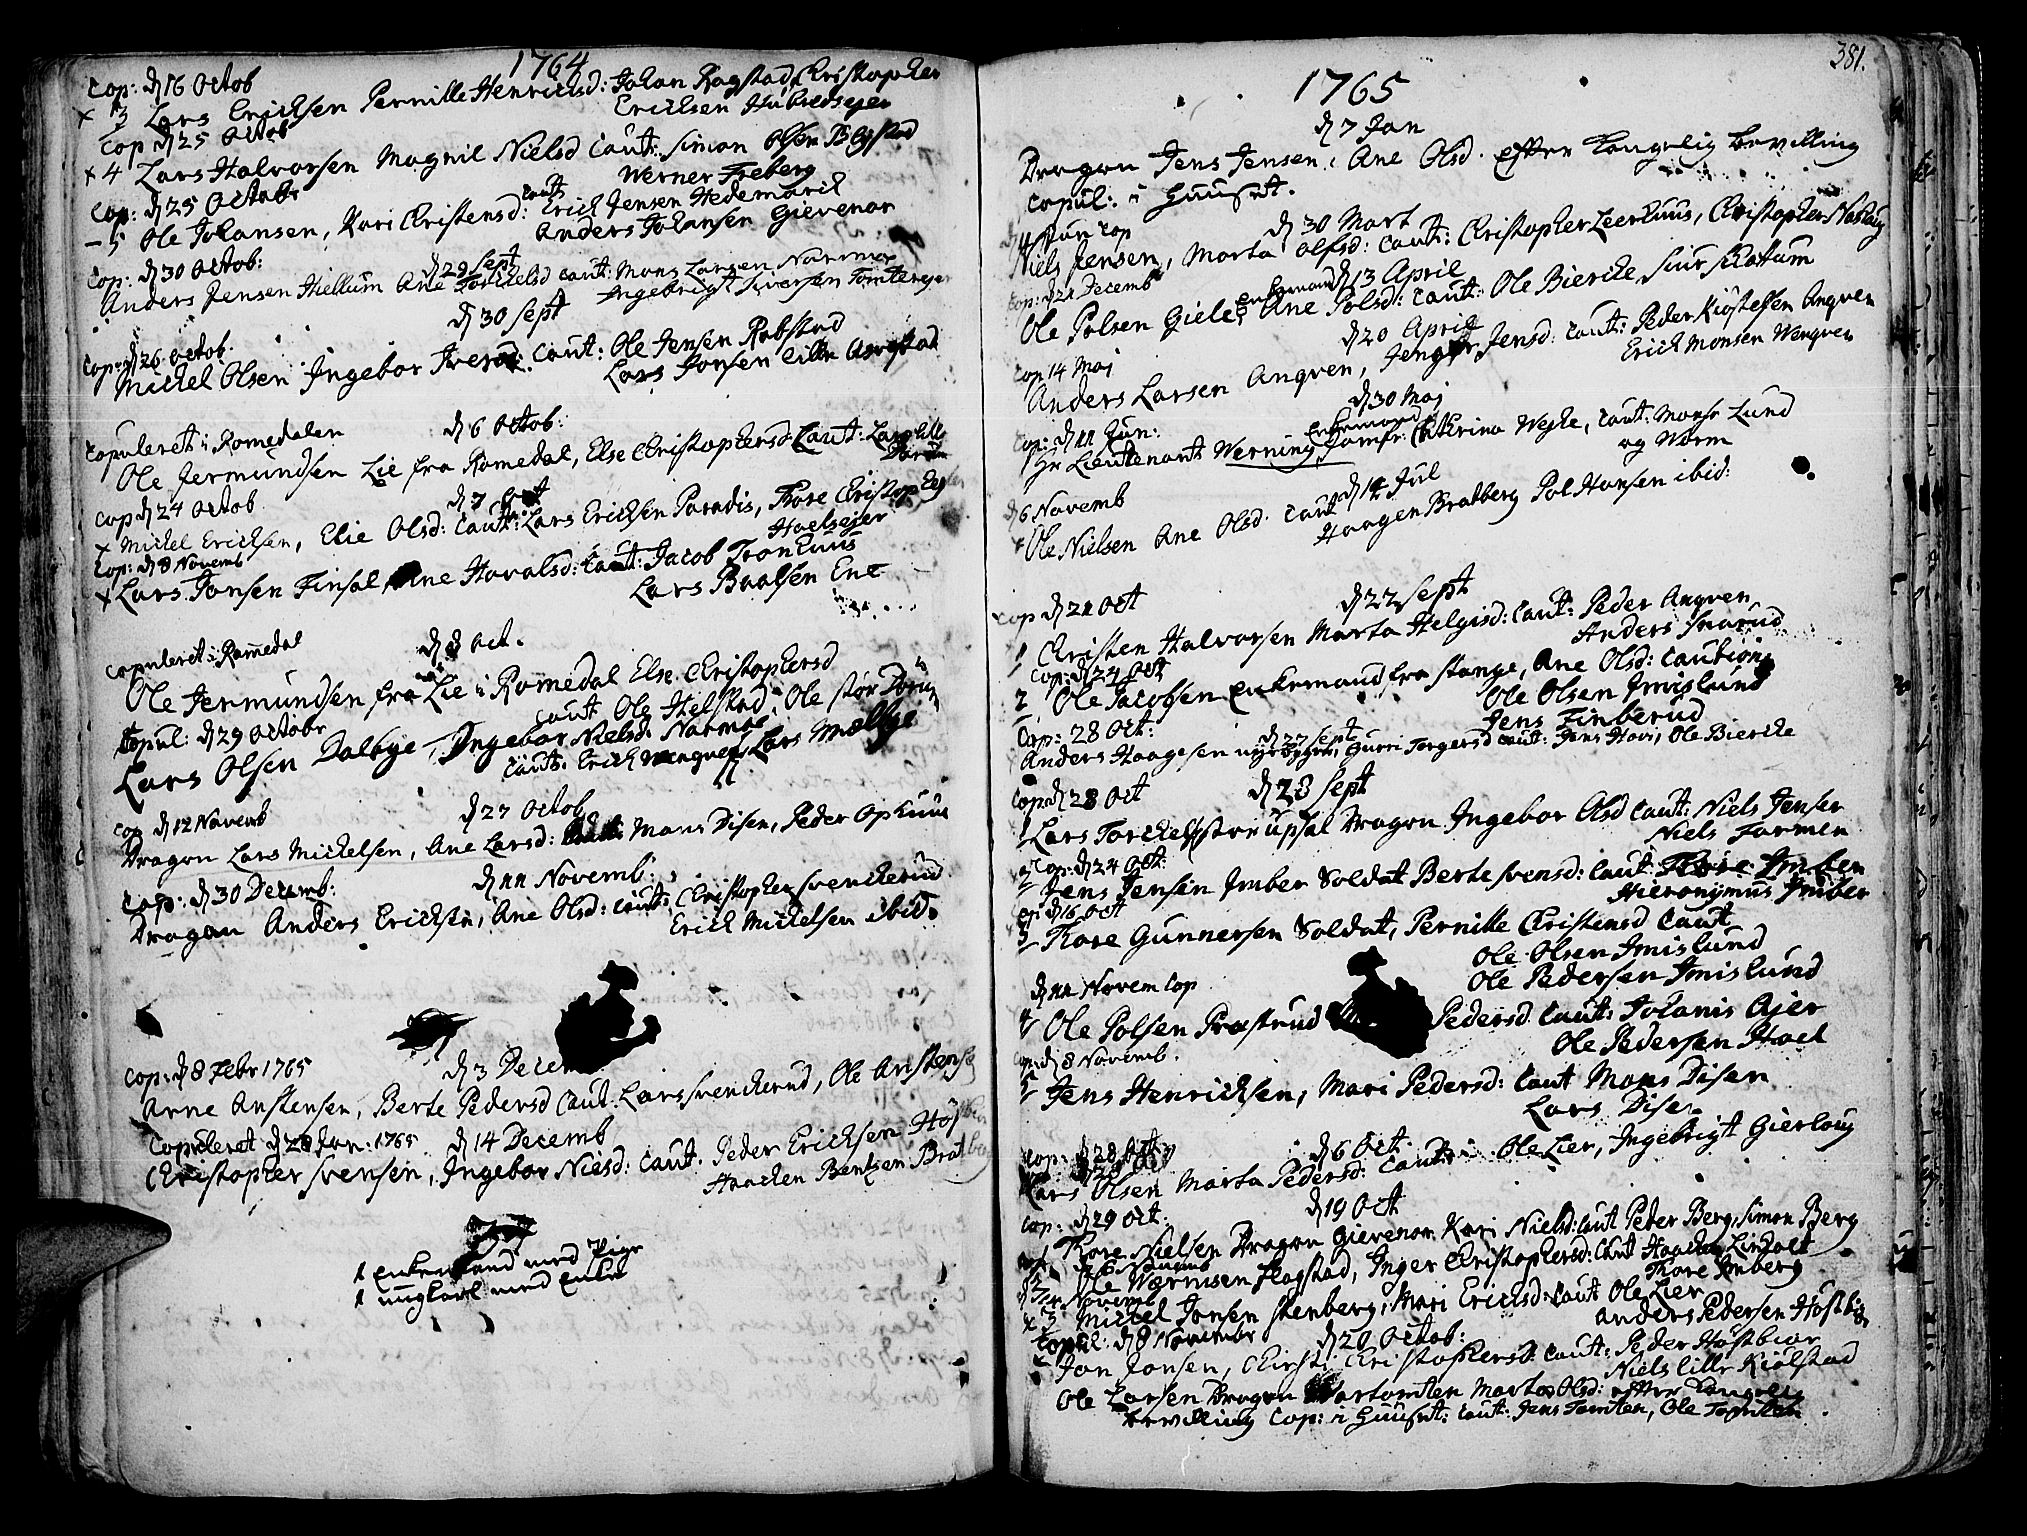 1764
Cop: d 16 Octob
x 3 Lars Erichsen Pernille Henrichsd: Johan Ragstad, Christopher
Erichsen Hubredsejer
Cop d 25 Octob
x 4 Lars Halvorsen Magnil Nielsd Caut: Simon Olsen Bagstad
Werner Freberg
Cop: d 25 Octobr
- 5 Ole Johansen, Kari Christensd: Caut Erich Jensen Hedemarch
Anders Johansen Gievenor
Cop: d 30 Octob: d 29 Sept
Anders Jensen Hiellum Ane Torchelsd Caut: Mons Larsen Narmoe
Ingebrigt Siversen Tomterejer
d 30 Sept
Cop: d 26 octob.
Michel Olsen Ingebor Iversd: Caut: Ole Jensen Rabstad
Lars Jonsen lille
Copuleret i Romedalen d 6 Octob:
Ole Jermundsen Lie fra Romedal, Else Christophersd Caut: Lars lille
Cop d 24 Octob d 7 Oct
x Michel Erichsen, Elie Olsd: Caut: Lars Erichsen Paradis, Thore Christop
Hoelsejer
Cop: d 8 Novemb
x Lars Jonsen Finsal, Ane Haralsd: Caut: Jacob Tronhuus
Lars Baalsen Ene
Copuleret i Romedal d 8 Oct.
Ole Jermundsen fra Lie i Romedal Else Christophersd
Caut Ole Hielstad, Ole stor
Copul: d 29 Octobr
Lars Olsen Dalbye, Ingebor Nielsd Narmoe
Caut: Erich Wengven, Lars Melbye
Cop d 12 Novemb d 27 Octob
Dragon Lars Michelsen, Ane Larsd: Mons Disen, Peder Ophuus
Cop: d 30 Decemb: d 11 Novemb:
Dragon Anders Erichsen, Ane Olsd: Caut: Christopher Svencherud
Erich Michelsen ibid.
Cop: d 8 Febr 1765 d 3 Decem
Arne Anstensen, Berte Pedersd Caut. Lars Svencherud, Ole Anstense
Copuleret d 28 Jan. 1765 d 14 Decemb
Christopher Svensen, Ingebor Nielsd: Caut. Peder Erichsen Høstbior
Haachen Bentsen Bratberg
1 Enkemand med Pige
1 ungkarl med Enke
381.
1765
d 7 Jan
Dragon Jens Jensen, Ane Olsd. efter Kongelig Bevilling
Copul: i Huuset.
4 Jun Cop d 30 Mart
Niels Jensen, Marta Olfsd: Caut: Christopher Leerhuus, Christopher Naslug
Cop: d 21 Decemb Enkemand d 13 April
Ole Polsen Giele, Ane Polsd: Caut: Ole Bierche, Siur Skattum
d 20 April
Cop 14 Maj
Anders Larsen Angven, Jensd: Caut: Peder Kiøstelsen Angven
Erich Monsen Wengven
d 30 Maj
Cop: d 11 Jun: Enkemand
Hr Lieutenant Werning, Jomfr: Cathrina Wejhe, Caut: Monsr Lund
og Worm
d 6 Novemb d 14 Jul
Ole Nielsen Ane Olsd Caut Haagen Bratberg Pol Hansen ibid:
Cop d 21 Oct d 22 Sept
1 Christen Halvorsen Marta Helgisd: Caut: Peder Angven
Anders Snarud
Cop: d 24 Oct
2 Ole Jacobsen Enkemand fra Stange, Ane Olsd: Caution:
Ole Olsen Imislund
Jens Finberud
Cop: 28 Oct: d 27 Sept
Anders Haagesen nyebyggen, Gurri Torgersd Caut: Jens Hovi, Ole Bierche
Cop: d 28 Oct d 28 Sept
1 Lars Torchelsstorupsal Dragon Ingebor Olsd Caut: Niels Jensen
Niels Farmen
Cop: d 24 Oct:
2 Jens Jensen Imber Soldat Berte Svensd: Caut: Thore Imber
Hieronymus Imber
Cop d 16 Oct
3 Thore Gunnersen Soldat, Pernille Christensd Caut
Ole Olsen Imislund
Ole Pedersen Imislund
d 11 Novem Cop
4 Ole Polsen Prestrud Pedersd. Caut: Johanis Ajer
Ole Pedersen Hoel
Cop: d 8 Novemb.
5 Jens Henrichsen, Mari Pedersd: Caut Mons Disen
Lars Disen
Cop: d 28 Oct d 6 Oct
Lars Olsen Marta Pedersd: Caut: Ole Lier, Ingebrigt Gierlaug
Cop: d 29 Oct: d 19 Oct
Thore Nielsen Dragon Gievenor Kari Nielsd: Caut Peder Berg, Simon Berg
Ole Wermsen Flagstad, Inger Christophersd: Caut Haachen Lindolt
Thore Imberg
x 3 Michel Jonsen Stenberg, Mari Erichsd: Caut Ole Lier
Anders Pedersen Høstbior
Copul: d 8 November d 20 Octob:
Jon Jonsen, Chirsti Christophersd: Caut: Peder Høstbior
Niels lille Kiølstad
Ole Larsen Dragon Martomten Marta Olsd: efter Kongelig
Bevilling Cop: i Huuset: Caut: Jens Tomten, Ole Tomten